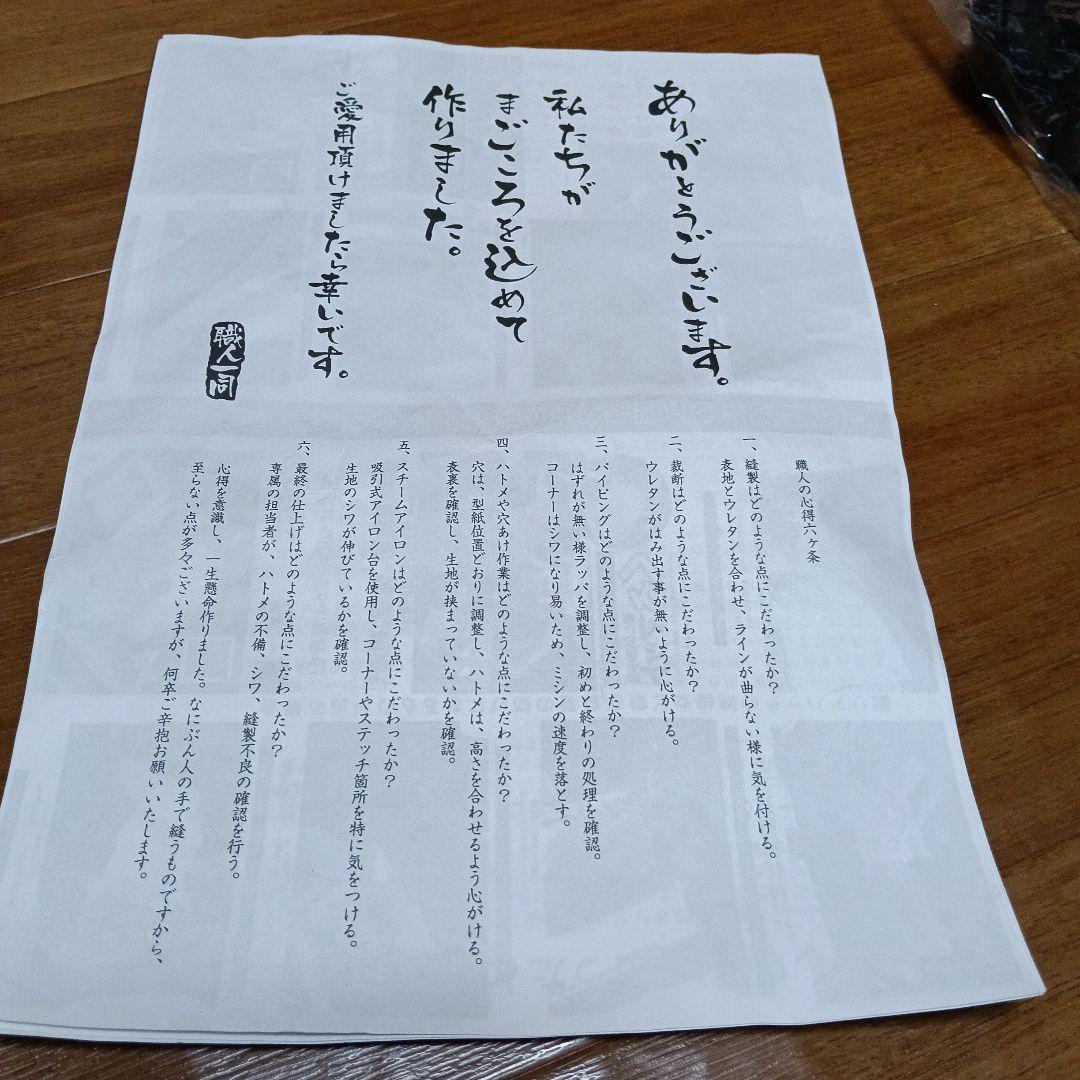 ありがとうございます。
私たちが
まごころを込めて
作りました。
ご愛用頂けましたら幸いです。
職人一同
職人の心得六ヶ条
一、縫製はどのような点にこだわったか?
表地とウレタンを合わせ、ラインが曲らない様に気を付ける。
二、裁断はどのような点にこだわったか?
ウレタンがはみ出す事が無いように心がける。
三、パイピングはどのような点にこだわったか?
はずれが無い様ラッパを調整し、初めと終わりの処理を確認。
コーナーはシワになり易いため、ミシンの速度を落とす。
四、ハトメや穴あけ作業はどのような点にこだわったか?
穴は、型紙位置どおりに調整し、ハトメは、高さを合わせるよう心がける。
表裏を確認し、生地が挟まっていないかを確認。
五、スチームアイロンはどのような点にこだわったか?
吸引式アイロン台を使用し、コーナーやステッチ箇所を特に気をつける。
生地のシワが伸びているかを確認。
六、最終の仕上げはどのような点にこだわったか?
専属の担当者が、ハトメの不備、シワ、縫製不良の確認を行う。
心得を意識し、一生懸命作りました。なにぶん人の手で縫うものですから、
至らない点が多々ございますが、何卒ご辛抱お願いいたします。